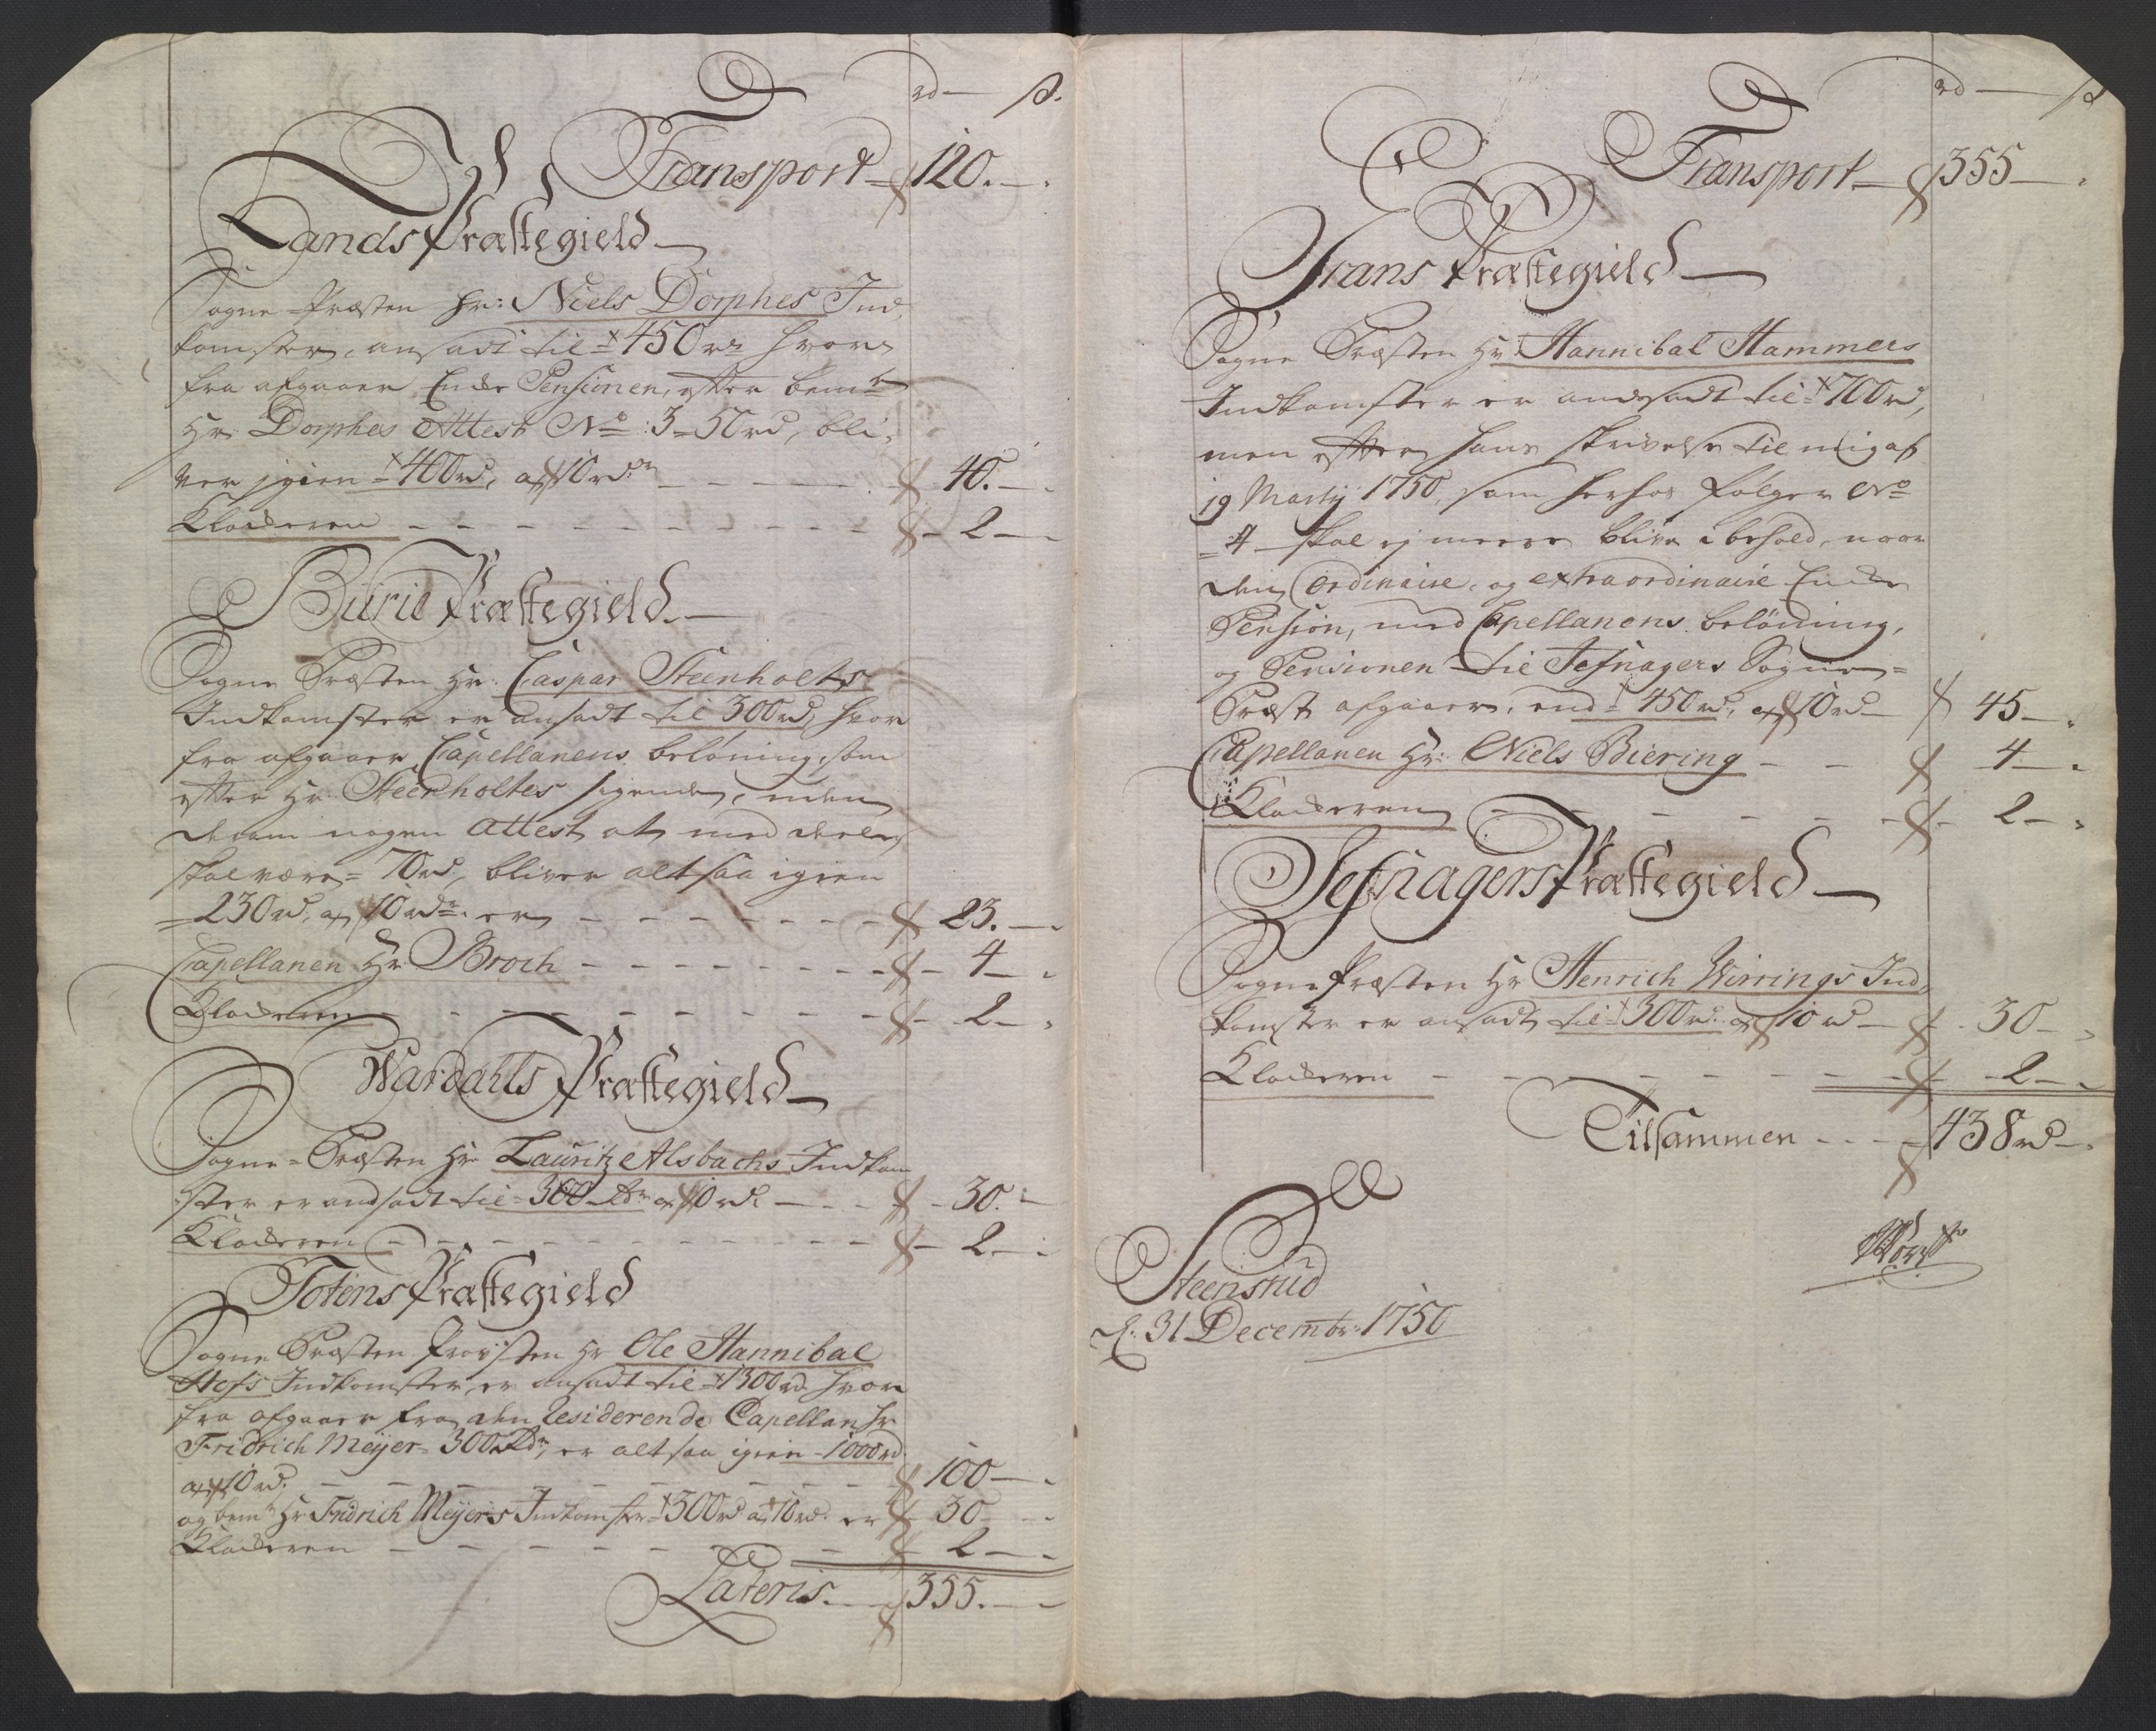 rd — s.
Transport — 120. —
Lands Præstegield —
Sogne-Præsten Hr: Niels Dorphes Ind,
komster, ansadt til = 450 rd hvor
fra afgaaer Enke Pensionen, efter bemte
Hr: Dorphes Attest No: 3 = 50 rd, bli-
ver igien = 400 rd, af 10 rd — 40. —
Klockeren — 2 —
Biirid Præstegield. —
Sogne Præsten Hr: Caspar Steenholts
Indkomster er ansadt til 300 rd, hvor
fra afgaaer, Capellanens belöning, som
efter Hr. Steenholtes sigende, uden
derom nogen Attest at meddeele,
skal være = 70 rd, bliver altsaa igien
= 230 rd, af 10 rd er — 23. —
Capellanen Hr Broch — 4 —
Klockeren — 2 —
Wardahls Præstegield —
Sogne-Præsten Hr Lauritz Alsbachs Indkom
ster er andsadt til = 300 Rdr af 10 rd. — 30. —
Klockeren — 2 —
Totens Præstegield
Sogne Præsten Provsten Hr Ole Hannibal
Hofs Indkomster, er ansadt til = 1300 rd. hvor
fra afgaaer fra den Residerende Capellan Hr
Fridrich Meyer = 300 Rdr, er altsaa igien = 1000 rd
af 10 rd. — 100 —
og bemte Hr Fridrich Meyers Indkomster = 300 rd af 10 rd. er 30 —
Klockeren — 2 —
Lateris. — 355. —
rd — s
Transport — 355 —
Grans Præstegield —
Sogne Præsten Hr Hannibal Hammers
Indkomster er andsadt til = 700 rd,
men efter hans skrivelse til mig af
19 Martij 1750, som herhos følger No
= 4 — skal ej meere blive i behold, naar
den ordinaire, og extraordinaire Enke
Pension, med Capellanens belönning,
og Pensionen til Jefnagers Sogne =
Præst afgaaer, end = 450 rd, af 10 rd — 45 —
Capellanen Hr: Niels Biering — 4 —
Klockeren — 2 —
Jefnagers Præstegield —
Sogne Præsten Hr Henrich Wirrings Ind,
komster er ansadt til = 300 rd. af 10 rd — 30 —
Klockeren — 2 —
Tilsammen — 438 rd —
Steensrud
d: 31 Decembr: 1750